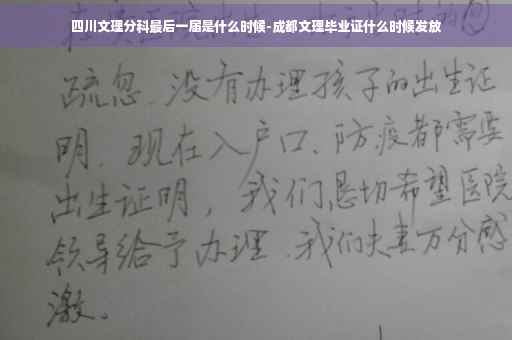 四川文理分科最后一届是什么时候-成都文理毕业证什么时候发放
疏忽、没有办理孩子的出生证
明、现在入户口、防疫都需要
出生证明，我们恳切希望医院
领导给予办理、我们夫妻万分感
激。